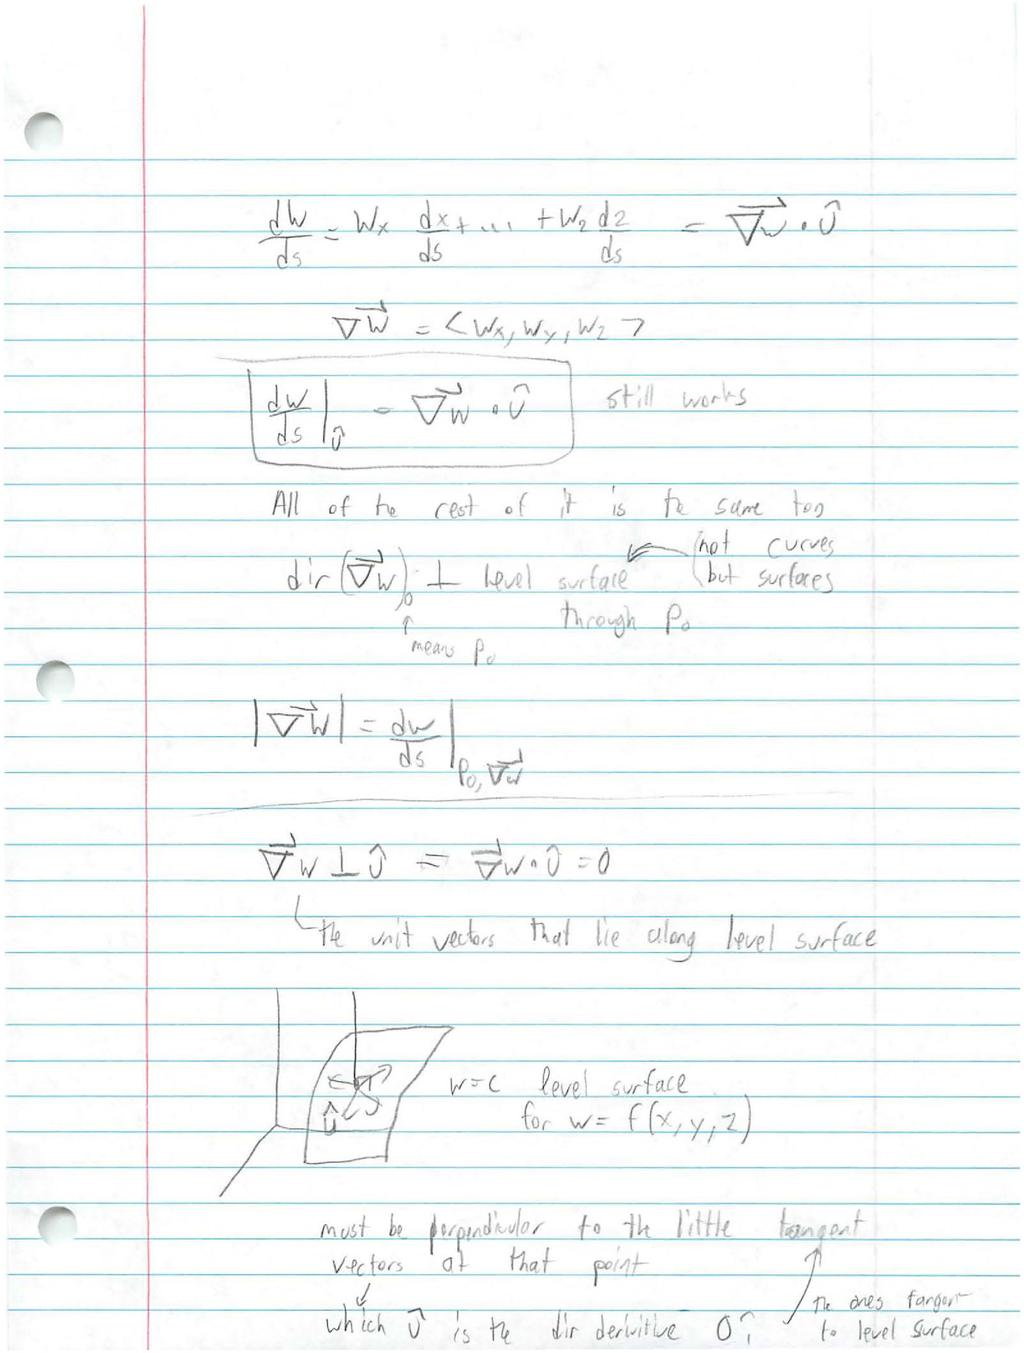 dw/ds = Wx dx/ds + ... + Wz dz/ds = ∇⃗w · û
∇⃗w = <Wx, Wy, Wz>
dw/ds |û = ∇⃗w · û still works
All of the rest of it is the same too
dir (∇⃗w)₀ ⊥ level surface (not curves
but surfaces
through P₀
↑
means P₀
|∇⃗w| = dw/ds |P₀, ∇⃗w
∇⃗w ⊥ û = ∇⃗w · û = 0
the unit vectors that lie along level surface
w=c level surface
û
for w = f(x, y, z)
must be perpendicular to the little tangent
vectors at that point
which û is the dir derivitive 0?
the ones tangent
to level surface